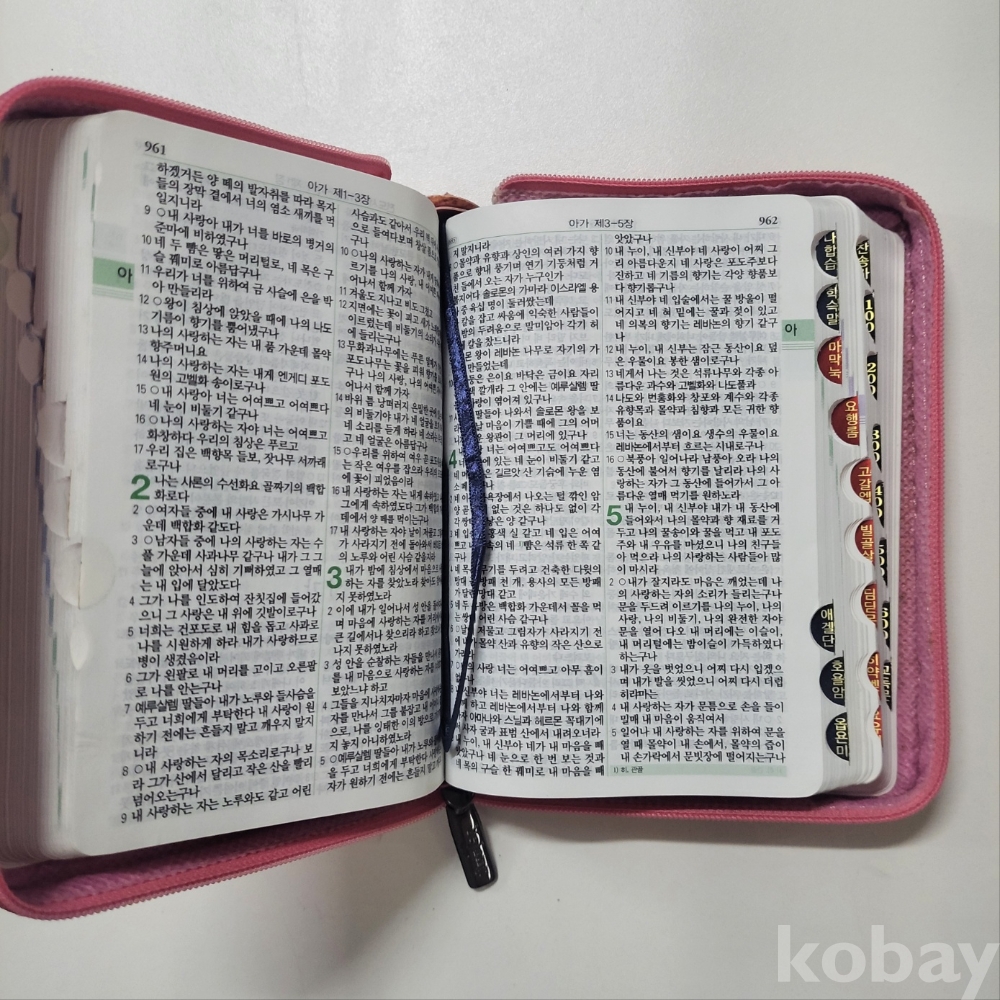 961
아가 제1-3장
하겠거든 양 떼의 발자취를 따라 목자
들의 장막 곁에서 너의 염소 새끼를 먹
일지니라
9 ○내 사랑아 내가 너를 바로의 병거의
준마에 비하였구나
10 네 두 뺨은 땋은 머리털로, 네 목은 구
슬 꿰미로 아름답구나
11 우리가 너를 위하여 금 사슬에 은을 박
아 만들리라
12 ○왕이 침상에 앉았을 때에 나의 나도
기름이 향기를 뿜어냈구나
13 나의 사랑하는 자는 내 품 가운데 몰약
향주머니요
14 나의 사랑하는 자는 내게 엔게디 포도
원의 고벨화 송이로구나
15 ○내 사랑아 너는 어여쁘고 어여쁘다
네 눈이 비둘기 같구나
16 ○나의 사랑하는 자야 너는 어여쁘고
화창하다 우리의 침상은 푸르고
17 우리 집은 백향목 들보, 잣나무 서까래
로구나
2 나는 사론의 수선화요 골짜기의 백합
화로다
2 ○여자들 중에 내 사랑은 가시나무 가
운데 백합화 같도다
3 ○남자들 중에 나의 사랑하는 자는 수
풀 가운데 사과나무 같구나 내가 그 그
늘에 앉아서 심히 기뻐하였고 그 열매
는 내 입에 달았도다
4 그가 나를 인도하여 잔칫집에 들어갔
으니 그 사랑은 내 위에 깃발이로구나
5 너희는 건포도로 내 힘을 돕고 사과로
나를 시원하게 하라 내가 사랑하므로
병이 생겼음이라
6 그가 왼팔로 내 머리를 고이고 오른팔
로 나를 안는구나
7 예루살렘 딸들아 내가 노루와 들사슴을
두고 너희에게 부탁한다 내 사랑이 원
하기 전에는 흔들지 말고 깨우지 말지
니라
8 ○내 사랑하는 자의 목소리로구나 보
라 그가 산에서 달리고 작은 산을 빨리
넘어오는구나
9 내 사랑하는 자는 노루와도 같고 어린
아
사슴과도 같아서 우리 벽
으로 들여다보며 창살
구나
10 ○나의 사랑하는 자가
르기를 나의 사랑, 내
어나서 함께 가자
11 겨울도 지나고 비도 그쳤고
12 지면에는 꽃이 피고
이르렀는데 비둘기의 소리가
에 들리는구나
13 무화과나무에는 푸른
포도나무는 꽃을 피워
구나 나의 사랑, 나의
어나서 함께 가자
14 바위 틈 낭떠러지 은밀한
의 비둘기야 내가 네 얼굴을
네 소리를 듣게 하라 네 소리는
고 네 얼굴은 아름답구나
15 ○우리를 위하여 여우
는 작은 여우를 잡으라 우리의
에 꽃이 피었음이라
16 내 사랑하는 자는 내게 속하였고
그에게 속하였도다 그가
데에서 양 떼를 먹이는구나
17 내 사랑하는 자야 날이 저물고
가 사라지기 전에 돌아와서
의 노루와 어린 사슴 같을지라
3 내가 밤에 침상에서 마음으로
하는 자를 찾았노라 찾아도
지 못하였노라
2 이에 내가 일어나서 성 안을
며 마음에 사랑하는 자를 거리에서나
큰 길에서나 찾으리라 하고
나지 못하였노라
3 성 안을 순찰하는 자들을 만나서
를 내 마음으로 사랑하는 자를
보았느냐 하고
4 그들을 지나치자마자 마음에
자를 만나서 그를 붙잡고 내
으로, 나를 잉태한 이의 방으로
지 놓지 아니하였노라
5 ○예루살렘 딸들아 내가 노루와
을 두고 너희에게 부탁한다 사랑하는
자가 원하기 전에는 흔들지 말고
962
아가 제3-5장
지 말지니라
○몰약과 유향과 상인의 여러 가지 향
품으로 향내 풍기며 연기 기둥처럼 거
친 들에서 오는 자가 누구인가
볼지어다 솔로몬의 가마라 이스라엘 용
사 중 육십 명이 둘러쌌는데
칼을 잡고 싸움에 익숙한 사람들이
밤의 두려움으로 말미암아 각기 허
칼을 찼느니라
몬 왕이 레바논 나무로 자기의 가
만들었는데
둥은 은이요 바닥은 금이요 자리
색 깔개라 그 안에는 예루살렘 딸
사랑이 엮어져 있구나
딸들아 나와서 솔로몬 왕을 보
날 마음이 기쁠 때에 그의 어머
운 왕관이 그 머리에 있구나
4
너는 어여쁘고도 어여쁘다
에 있는 네 눈이 비둘기 같고
은 길르앗 산 기슭에 누운 염
소
목욕장에서 나오는 털 깎인 암
없는 것은 하나도 없이 각
낳은 양 같구나
홍색 실 같고 네 입은 어여
의 네 뺨은 석류 한 쪽 같
구나
기를 두려고 건축한 다윗의
방패 천 개, 용사의 모든 방패
가 달린 망대 같고
은 백합화 가운데서 꼴을 먹
어린 사슴 같구나
저물고 그림자가 사라지기 전
가 몰약 산과 유향의 작은 산으로
가리라
의 사랑 너는 어여쁘고 아무 흠이
없구나
신부야 너는 레바논에서부터 나와
하고 레바논에서부터 나와 함께
아마나와 스닐과 헤르몬 꼭대기에
자 굴과 표범 산에서 내려오너라
누이, 내 신부야 네가 내 마음을 빼
았구나 네 눈으로 한 번 보는 것과
네 목의 구슬 한 꿰미로 내 마음을 빼
앗았구나
10 내 누이, 내 신부야 네 사랑이 어찌 그
리 아름다운지 네 사랑은 포도주보다
진하고 네 기름의 향기는 각양 향품보
다 향기롭구나
11 내 신부야 네 입술에서는 꿀 방울이 떨
어지고 네 혀 밑에는 꿀과 젖이 있고
네 의복의 향기는 레바논의 향기 같구
나
12 내 누이, 내 신부는 잠근 동산이요 덮
은 우물이요 봉한 샘이로구나
13 네게서 나는 것은 석류나무와 각종 아
름다운 과수와 고벨화와 나도풀과
14 나도와 번홍화와 창포와 계수와 각종
유향목과 몰약과 침향과 모든 귀한 향
품이요
15 너는 동산의 샘이요 생수의 우물이요
레바논에서부터 흐르는 시내로구나
16 ○북풍아 일어나라 남풍아 오라 나의
동산에 불어서 향기를 날리라 나의 사
랑하는 자가 그 동산에 들어가서 그 아
름다운 열매 먹기를 원하노라
5 내 누이, 내 신부야 내가 내 동산에
들어와서 나의 몰약과 향 재료를 거
두고 나의 꿀송이와 꿀을 먹고 내 포도
주와 내 우유를 마셨으니 나의 친구들
아 먹으라 나의 사랑하는 사람들아 많
이 마시라
2 ○내가 잘지라도 마음은 깨었는데 나
의 사랑하는 자의 소리가 들리는구나
문을 두드려 이르기를 나의 누이, 나의
사랑, 나의 비둘기, 나의 완전한 자야
문을 열어 다오 내 머리에는 이슬이,
내 머리털에는 밤이슬이 가득하였다
하는구나
3 내가 옷을 벗었으니 어찌 다시 입겠으
며 내가 발을 씻었으니 어찌 다시 더럽
히랴마는
4 내 사랑하는 자가 문틈으로 손을 들이
밀매 내 마음이 움직여서
5 일어나 내 사랑하는 자를 위하여 문을
열 때 몰약이 내 손에서, 몰약의 즙이
내 손가락에서 문빗장에 떨어지는구나
1) 히, 관을
아
나합습
학슥말
마막눅
요행롬
고갈엡
빌골살
딤딛몬
애겔단
호욜암
옵욘미
찬송가
100
200
300
400
500
600
kobay